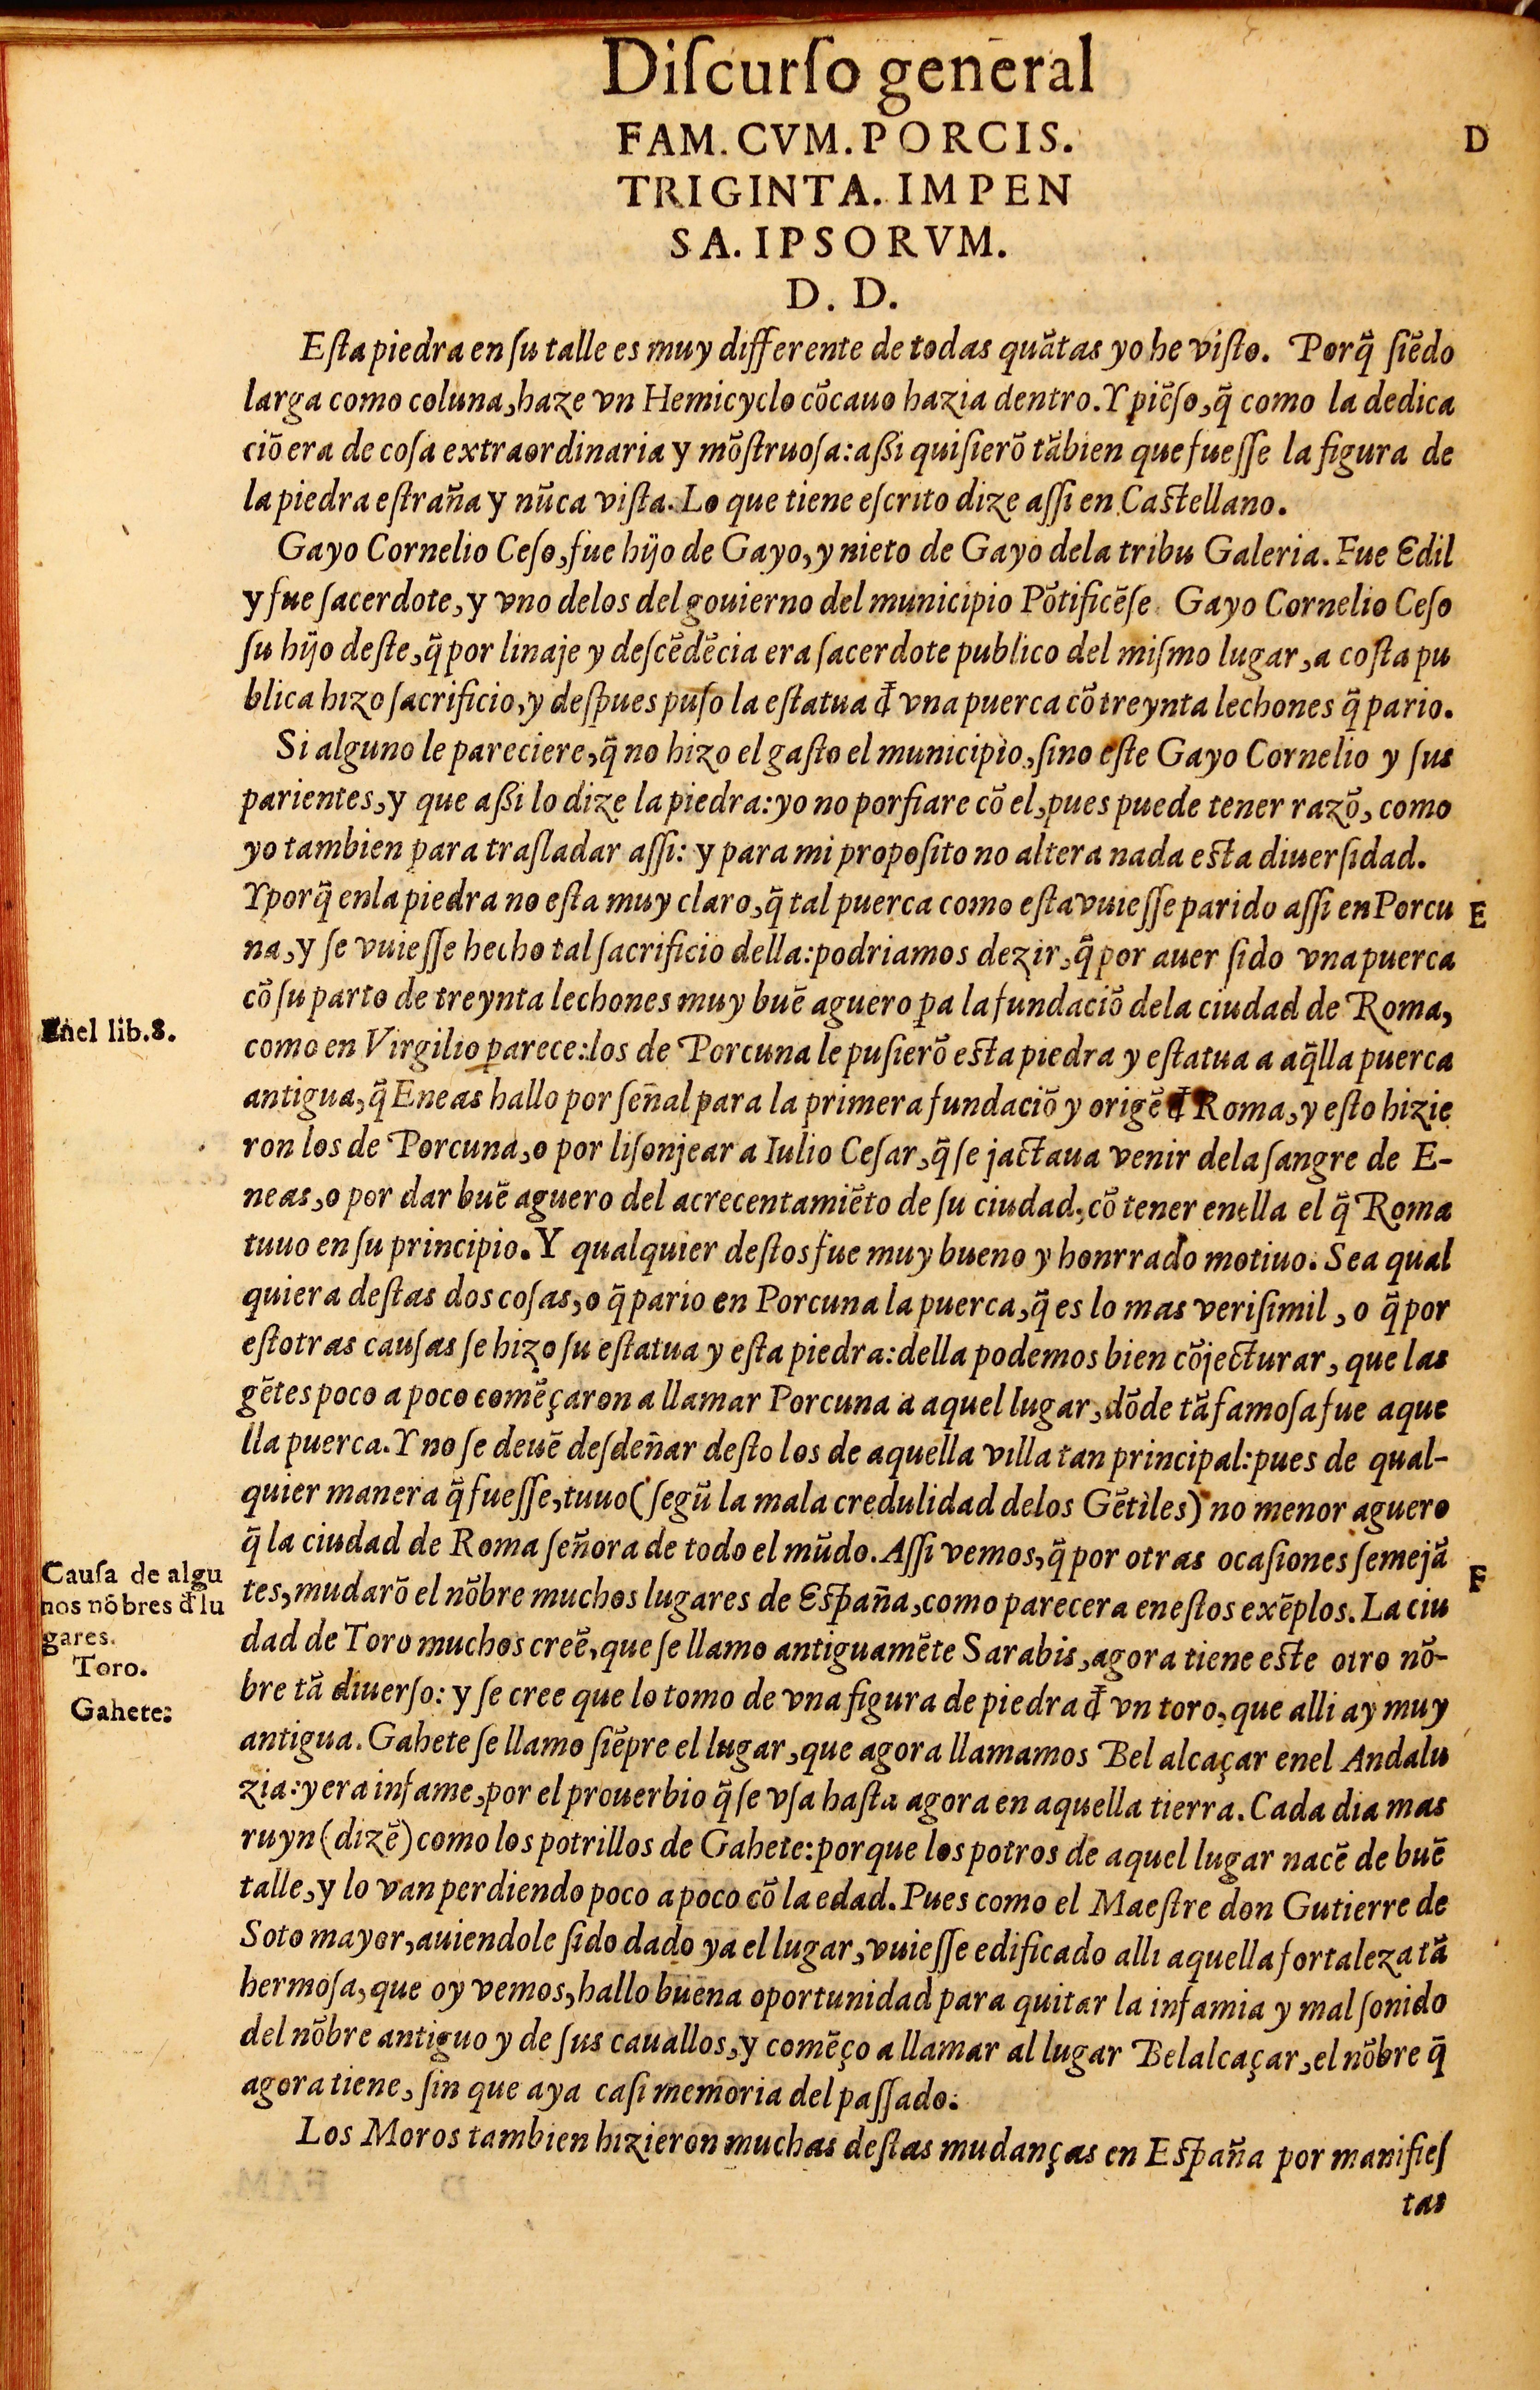 Diſcurſo general
FAM. CVM. PORCIS.
D
TRIGINTA. IMPEN
SA. IPSORVM.
D. D.
Eſta piedra en ſu talle es muy differente de todas quãtas yo he viſto. Porq̃ ſiẽdo
larga como coluna, haze vn Hemicyclo cõcauo hazia dentro. Y piẽſo, q̃ como la dedica
ciõ era de coſa extraordinaria y mõſtruoſa: aßi quiſierõ tãbien que fueſſe la figura de
la piedra eſtraña y nũca viſta. Lo que tiene eſcrito dize aſſi en Caſtellano.
Gayo Cornelio Ceſo, fue hijo de Gayo, y nieto de Gayo dela tribu Galeria. Fue Edil
y fue ſacerdote, y vno delos del gouierno del municipio Põtificẽſe. Gayo Cornelio Ceſo
ſu hijo deſte, q̃ por linaje y deſcẽdẽcia era ſacerdote publico del miſmo lugar, a coſta pu
blica hizo ſacrificio, y deſpues puſo la eſtatua đ vna puerca cõ treynta lechones q̃ pario.
Si alguno le pareciere, q̃ no hizo el gaſto el municipio, ſino eſte Gayo Cornelio y ſus
parientes, y que aßi lo dize la piedra: yo no porfiare cõ el, pues puede tener razõ, como
yo tambien para trasladar aſſi: y para mi propoſito no altera nada eſta diuerſidad.
Y porq̃ enla piedra no eſta muy claro, q̃ tal puerca como eſta vuieſſe parido aſſi en Porcu
E
na, y ſe vuieſſe hecho tal ſacrificio della: podriamos dezir, q̃ por auer ſido vna puerca
cõ ſu parto de treynta lechones muy buẽ aguero ꝑa la fundaciõ dela ciudad de Roma,
Enel lib.8.
como en Virgilio ꝑece: los de Porcuna le puſierõ eſta piedra y eſtatua a aq̃lla puerca
antigua, q̃ Eneas hallo por ſeñal para la primera fundaciõ y origẽ đ Roma, y eſto hizie
ron los de Porcuna, o por liſonjear a Iulio Ceſar, q̃ ſe jactaua venir dela ſangre de E-
neas, o por dar buẽ aguero del acrecentamiẽto de ſu ciudad, cõ tener enella el q̃ Roma
tuuo en ſu principio. Y qualquier deſtos fue muy bueno y honrrado motiuo. Sea qual
quiera deſtas dos coſas, o q̃ pario en Porcuna la puerca, q̃ es lo mas veriſimil, o q̃ por
eſtotras cauſas ſe hizo ſu eſtatua y eſta piedra: della podemos bien cõjecturar, que las
gẽtes poco a poco comẽçaron a llamar Porcuna a aquel lugar, dõde tã famoſa fue aque
lla puerca. Y no ſe deuẽ deſdeñar deſto los de aquella villa tan principal: pues de qual-
quier manera q̃ fueſſe, tuuo (ſegũ la mala credulidad delos Gẽtiles) no menor aguero
q̃ la ciudad de Roma ſeñora de todo el mũdo. Aſſi vemos, q̃ por otras ocaſiones ſemejã
F
Cauſa de algu
nos nõbres đ lu
gares.
Toro.
Gahete:
tes, mudarõ el nõbre muchos lugares de Eſpaña, como parecera eneſtos exẽplos. La ciu
dad de Toro muchos creẽ, que ſe llamo antiguamẽte Sarabis, agora tiene eſte otro nõ-
bre tã diuerſo: y ſe cree que lo tomo de vna figura de piedra đ vn toro, que alli ay muy
antigua. Gahete ſe llamo ſiẽpre el lugar, que agora llamamos Bel alcaçar enel Andalu
zia: y era infame, por el prouerbio q̃ ſe vſa haſta agora en aquella tierra. Cada dia mas
ruyn (dizẽ) como los potrillos de Gahete: porque los potros de aquel lugar nacẽ de buẽ
talle, y lo van perdiendo poco a poco cõ la edad. Pues como el Maeſtre don Gutierre de
Soto mayor, auiendole ſido dado ya el lugar, vuieſſe edificado alli aquella fortaleza tã
hermoſa, que oy vemos, hallo buena oportunidad para quitar la infamia y mal ſonido
del nõbre antiguo y de ſus cauallos, y comẽço a llamar al lugar Belalcaçar, el nõbre q̃
agora tiene, ſin que aya caſi memoria del paſſado.
Los Moros tambien hizieron muchas deſtas mudanças en Eſpaña por manifieſ
tas